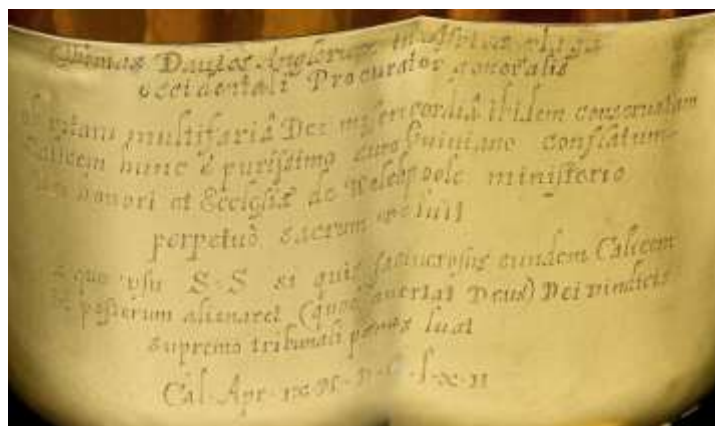 Thomas Dauies Anglorum in Affricæ plaga
occidentali Procurator generalis
ob vitam multifariâ Dei misericordiâ ibidem conseruatam
Calicem hunc è purissimo auro Guiniano conflatum
Dei honori et Ecclesiæ de Welchpoole ministerio
perpetuò sacrum voluit
a quo usu S·S si quis facinorosus eundem Calicem
in posterum alienaret (quod auertat Deus) Dei vindicis
supremo tribunali pœnas luat
Cal· Apr· ix· M· D· C· l· x· ii